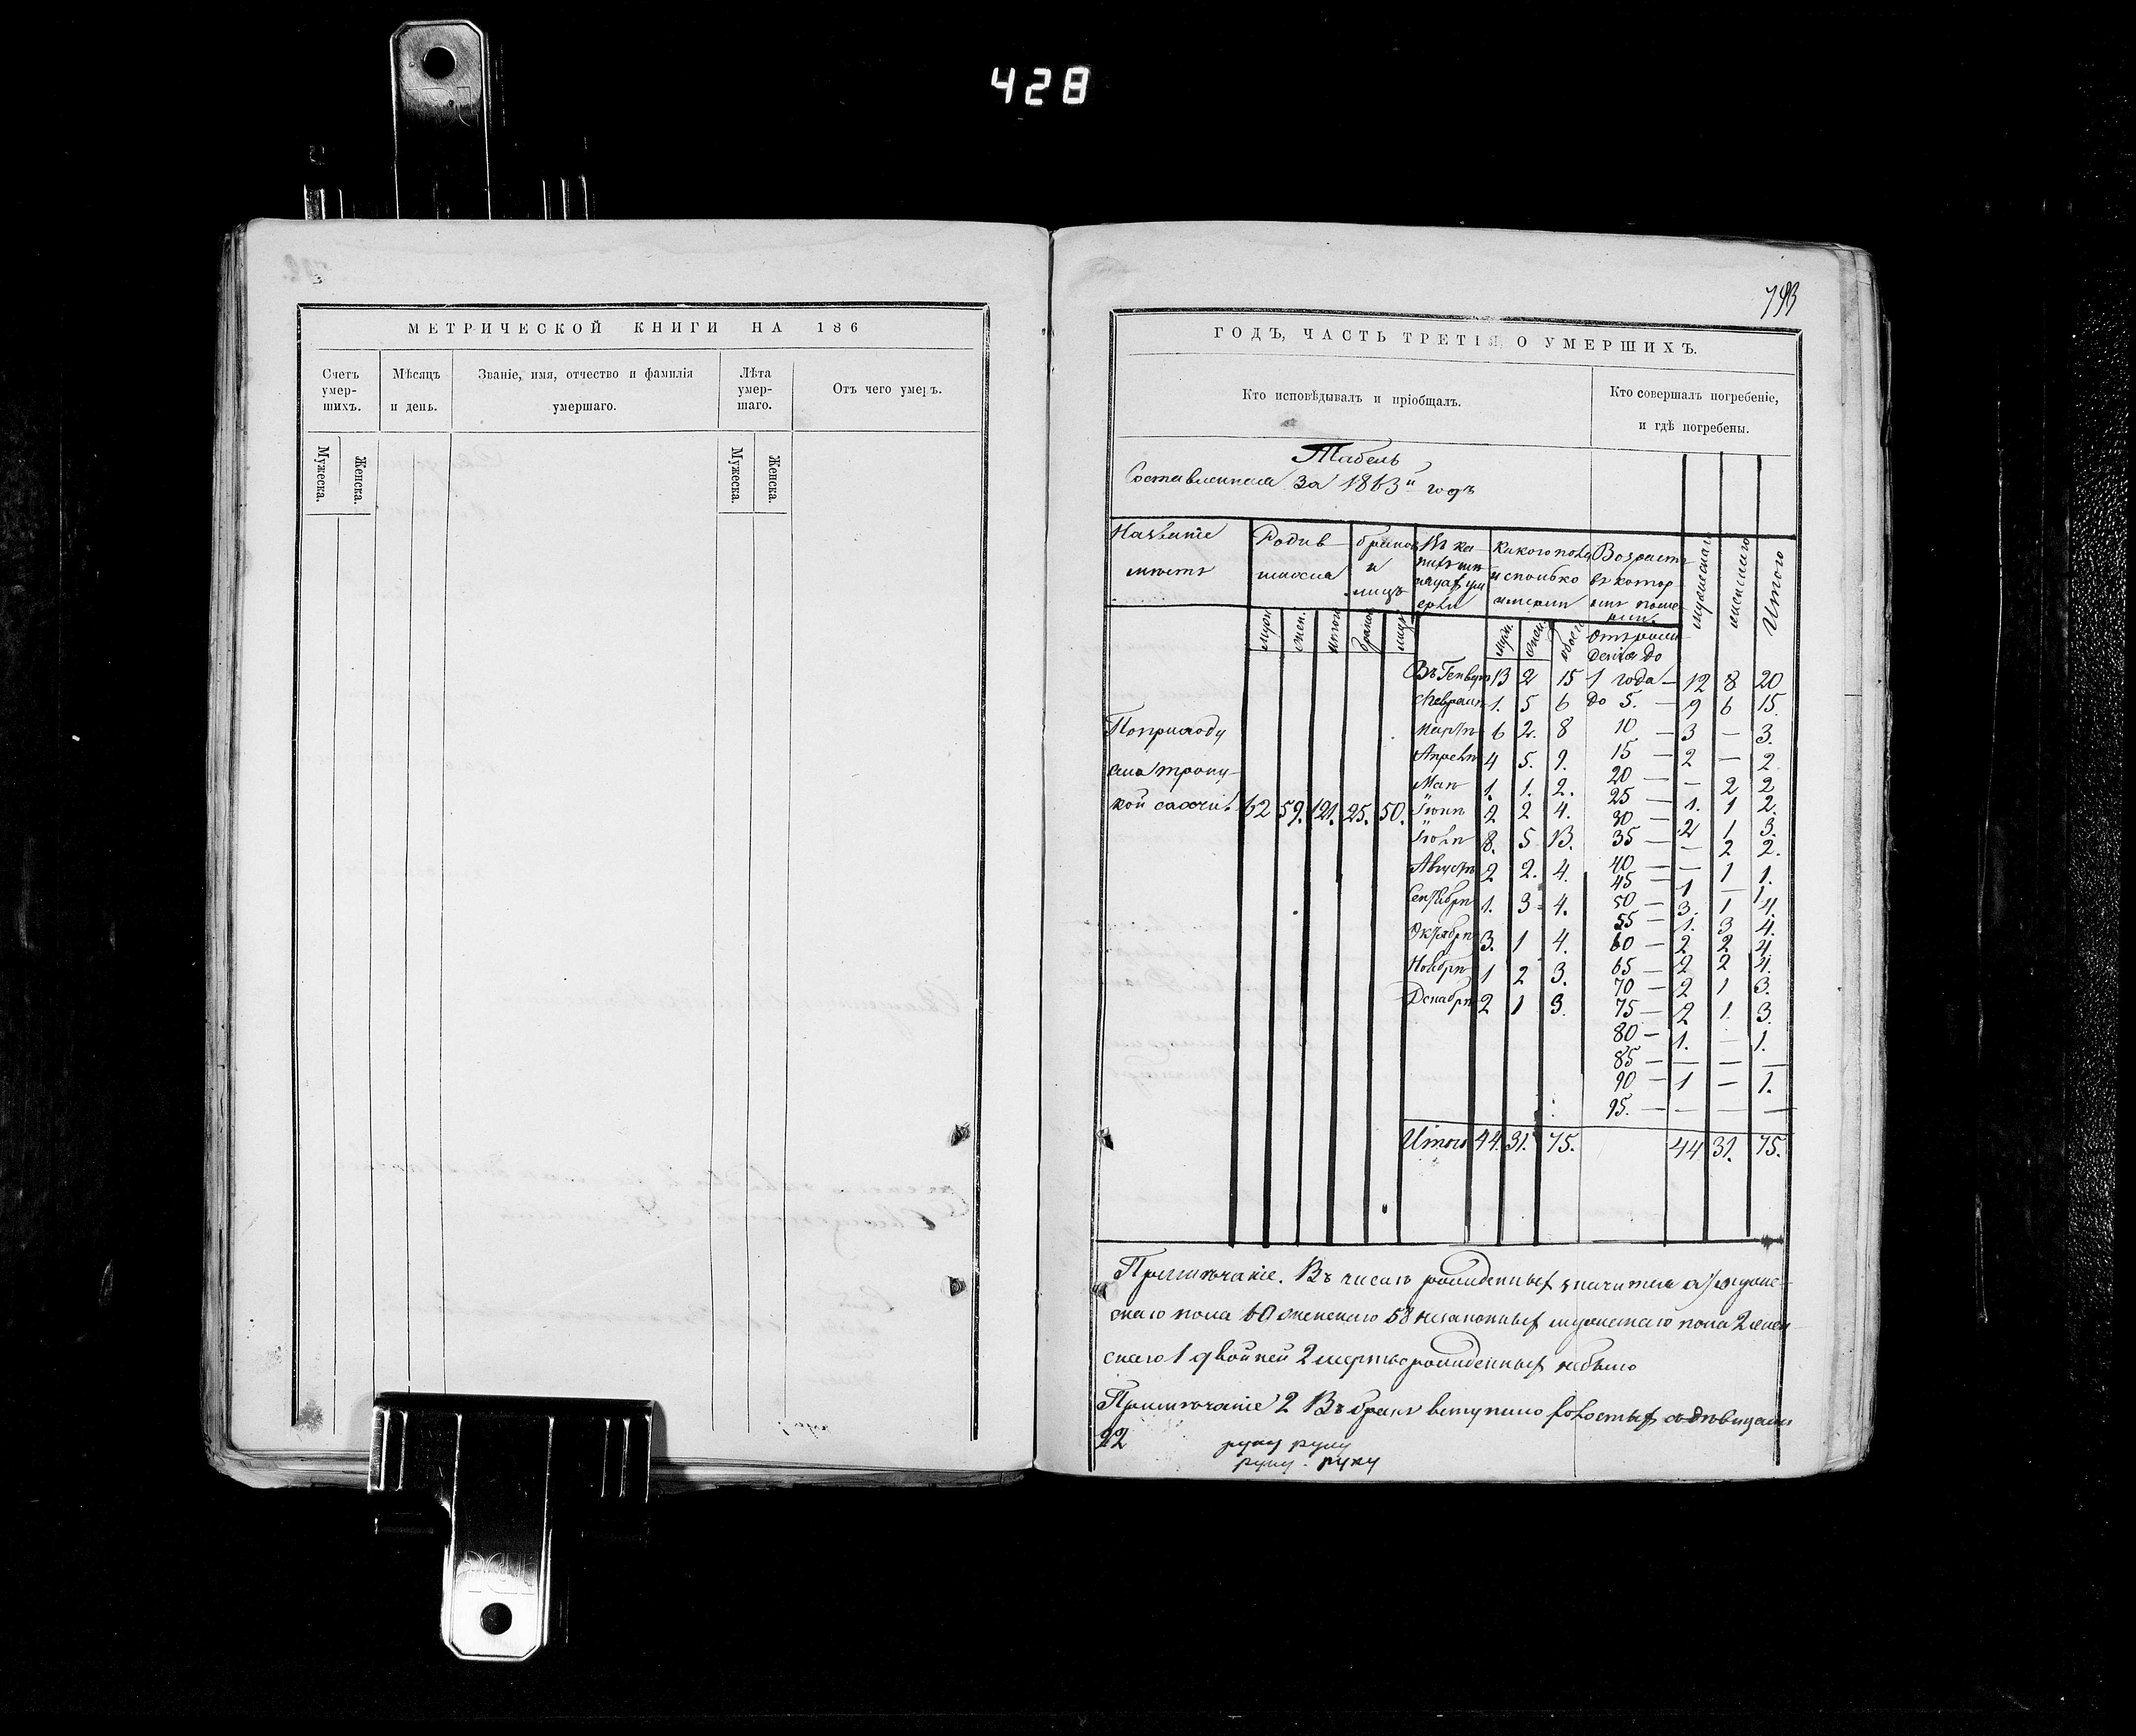 428
793
МЕТРИЧЕСКОЙ КНИГИ НА 186
Счетъ умер-шихъ.
Мѣсяцъ и день.
Званіе, имя, отчество и фамилія умершаго.
Лѣта умер-шаго.
Отъ чего умеръ.
Мужеска.
Женска.
Мужеска.
Женска.
ГОДЪ, ЧАСТЬ ТРЕТІЯ, О УМЕРШИХЪ.
Кто исповѣдывалъ и пріобщалъ.
Кто совершалъ погребеніе, и гдѣ погребены.
Табель
Составленная за 1863й годъ
Названіе мѣстъ
Родив шихся
браков и лицъ
Какого пола и сколько имянно
Возрастъ
мужескаго
женскаго
Итого
муж. жен. итого браков лицъ
муж. жен. обоего
Отъ рож дения до
Въ Генварѣ 13 2 15 1 года — 12 8 20
Февралѣ 1. 5 6 до 5. — 9 6 15.
Мартѣ 6 2. 8 10 — 3 — 3.
Апрелѣ 4 5. 9. 15 — 2 — 2.
Маѣ 1. 1. 2. 20 — — 2 2
25 — 1. 1 2.
По приходу
кой
62 59. 121. 25. 50.
Іюнѣ 2 2 4. 30 — 2 1 3.
Іюлѣ 8. 5 13. 35 — — 2 2.
Августѣ 2 2. 4. 40 — — 1 1.
45 — 1 — 1.
Сентябрѣ 1. 3 4. 50 — 3. 1 4.
55 — 1. 3 4.
Октябрѣ 3. 1 4. 60 — 2 2 4
Ноябрѣ 1 2 3. 65 — 2 2 4.
70 — 2 1 3.
Декабрѣ 2 1 3. 75 — 2 1. 3
80 — 1. — 1.
85 — — — —
90 — 1 — 1.
95. — — — —
Итого 44. 31. 75. 44 31. 75.
Примѣчаніе. Въ числѣ рожденныхъ значится а) мужес-
скаго пола 60 женскаго 58 незаконныхъ мужескаго пола 2 жен
скаго 1 двойней 2 мертворожденныхъ небыло
Примѣчаніе 2 Въ бракъ вступило холостыхъ съ дѣвицами
22
руку руку
руку. руку